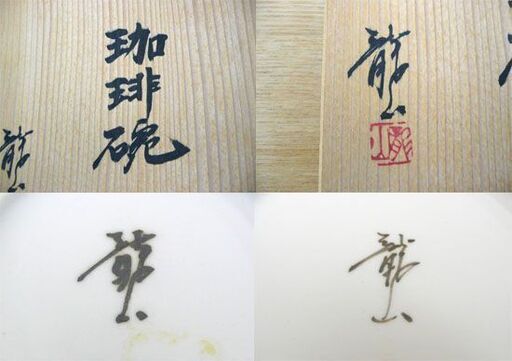 珈琲碗
龍山
龍山
龍山
龍山